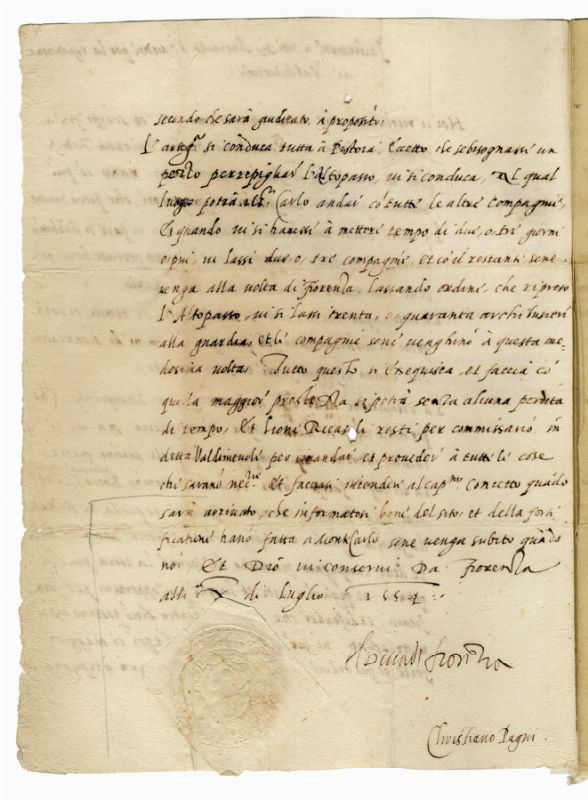 secondo che sarà giudicato à proposito.
L'artegl.ia si conduca tutta à Pistoia, Eccetto che se bisognassi un
pezzo per repigliar l'Altopasso, vi si conduca, Al qual
luogo potrà il s.r Carlo andar cō tutte le altre compagnie,
Et quando vi si havessi à metter tempo di dua, o tre giorni
o piu, vi lassi due o, tre compagnie, et cō el restante sene
venga alla volta di fiorenza, lassando ordine, che ripreso
l'Altopasso, vi si lassi trenta, o, quaranta archibusieri
alla guardia, et le compagnie sene venghino à questa me-
desima volta. Tutto questo si exequisca, et faccia cō
quella maggior prestezza si potrà senza alcuna perdita
di tempo, Et Lioni Ricasoli resti per commissario in
detta Valdinievole per mandar et proveder à tutte le cose
che sarano nec.rie et facciasi intendere al cap.no Concetto quādo
sarà arrivato, che informatosi bene del sito, et della forti-
ficatione hano fatta a MontCarlo, sene venga subito quā da
noi. Et Dio vi conservi Da Fiorenza
alli X di Luglio 1554.
El Duca di fiorenza
Christiano Pagni.